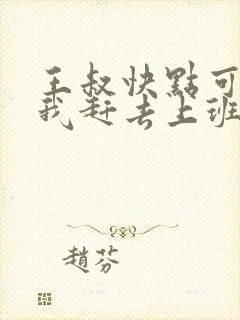 王叔快點可
我赶去上班
趙芬